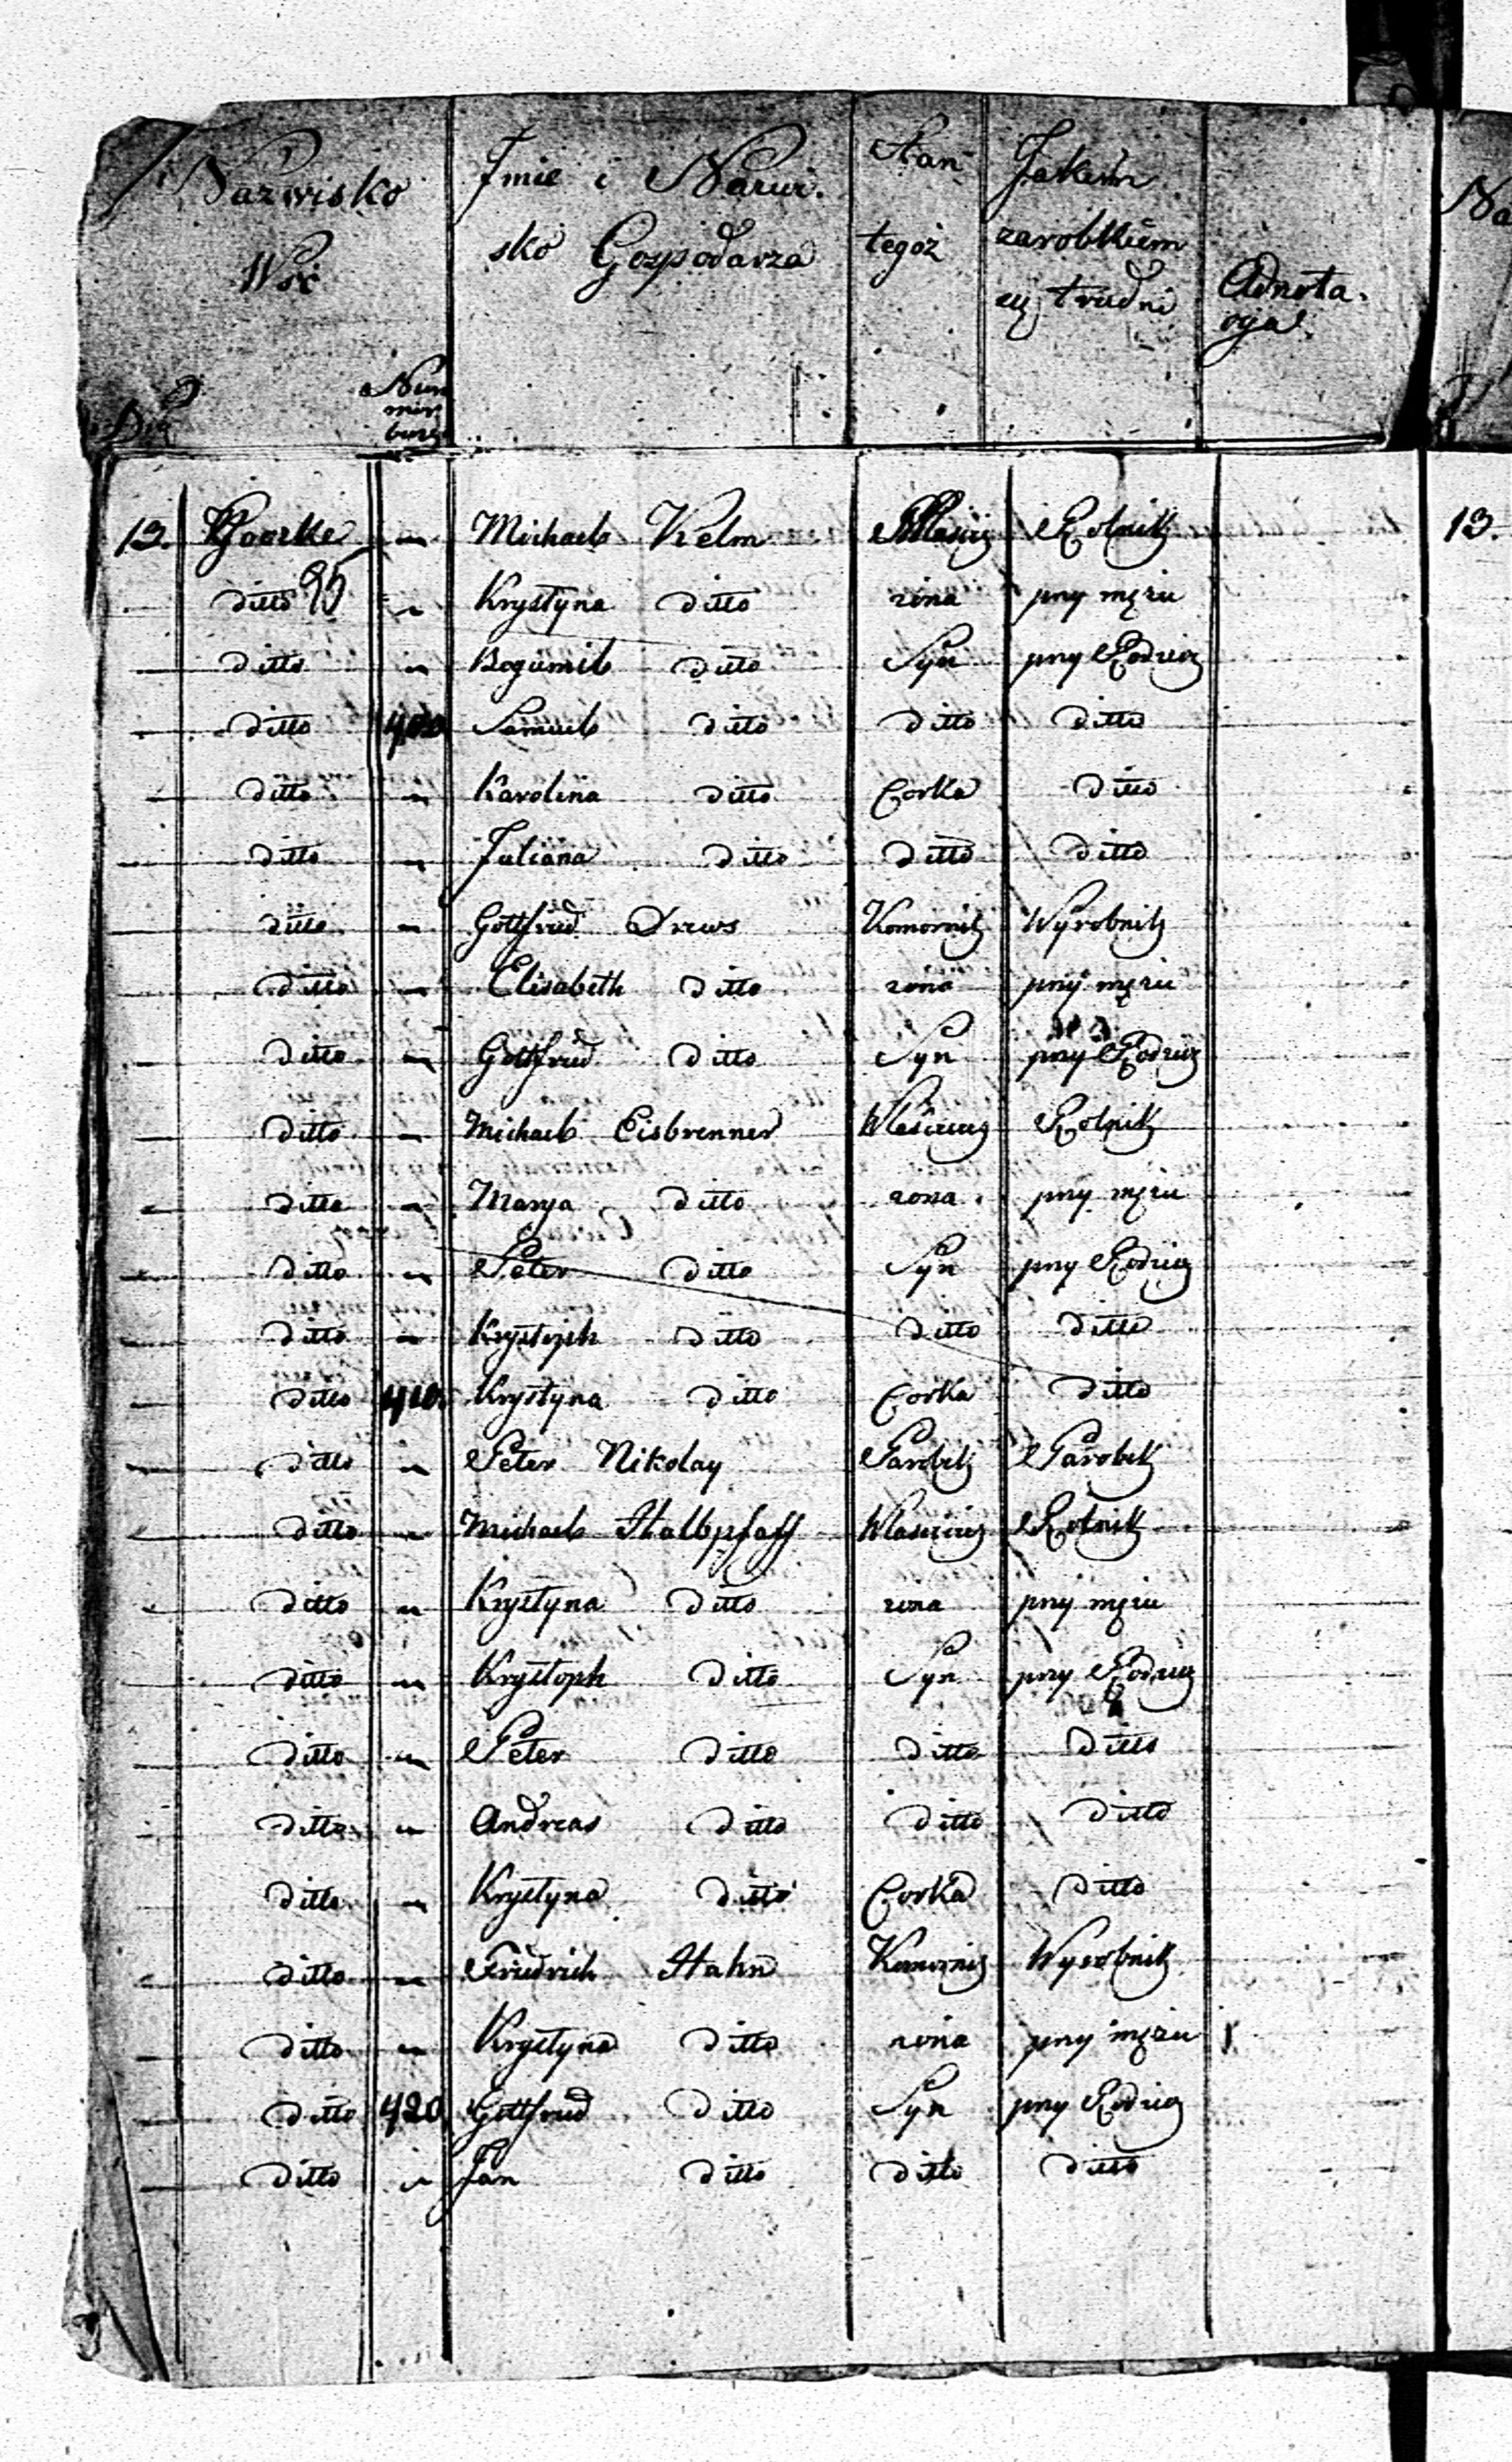 Nazwisko Wsi
Num
Imie i Nazwi-
sko Gospodarza
Stan
tegoż
Jakiem
zarobkiem
się trudni
Adnota-
cya
No
13. Gorke — Michael Kelm Właścic Rolnik 13.
ditto 95 — Krystyna ditto żona przy mężu
— ditto — Bogumil ditto Syn przy Rodzic
— ditto 400 Samuel ditto ditto ditto
— ditto — Karolina ditto Corka ditto
— ditto — Juliana ditto ditto ditto
— ditto — Gottfried Drews Komornik Wyrobnik
— ditto — Elisabeth ditto żona przy mężu
— ditto — Gottfried ditto Syn przy Rodzic
— ditto — Michael Eisbrenner Właściciel Rolnik
— ditto — Marya ditto żona przy mężu
— ditto — Peter ditto Syn przy Rodzic
— ditto — Krystoph ditto ditto ditto
— ditto 410. Krystyna ditto Corka ditto
— ditto — Peter Nikolay Parobek Parobek
— ditto — Michael Halbpfaff Właściciel Rolnik
— ditto — Krystyna ditto żona przy mężu
— ditto — Krystoph ditto Syn przy Rodzic
— ditto — Peter ditto ditto ditto
— ditto — Andreas ditto ditto ditto
— ditto — Krystyna ditto Corka ditto
— ditto — Friedrich Hahn Komornik Wyrobnik
— ditto — Krystyna ditto żona przy mężu
— ditto 420 Gottfried ditto Syn przy Rodzic
— ditto — Jan ditto ditto ditto